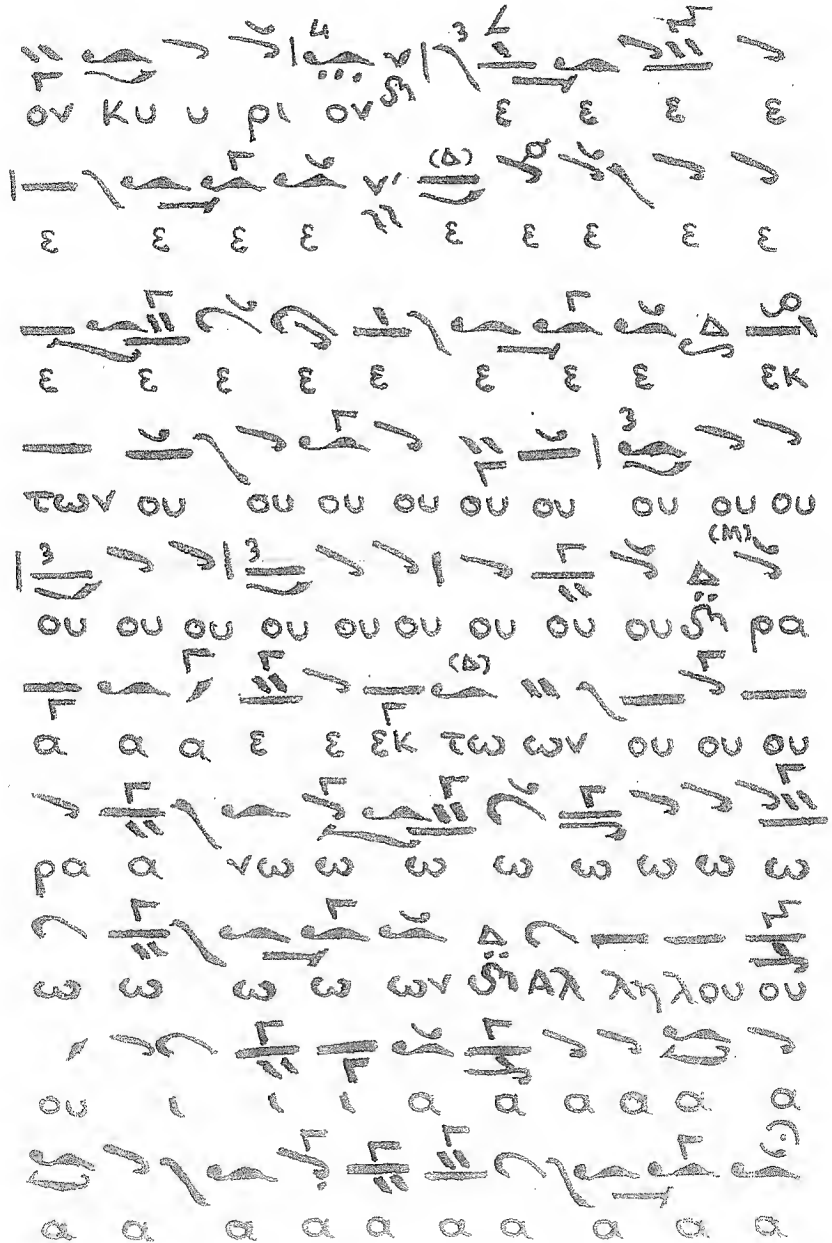 ον Κυ υ ρι ον ε ε ε ε
ε ε ε ε ε ε ε ε ε
ε ε ε ε ε ε ε ε εκ
των ου ου ου ου ου ου ου ου ου
ου ου ου ου ου ου ου ου ου ρα
α α α ε ε εκ τω ων ου ου ου
ρα α νω ω ω ω ω ω ω ω
ω ω ω ω ων Αλ λη λου ου
ου ι ι ι α α α α α α
α α α α α α α α α α